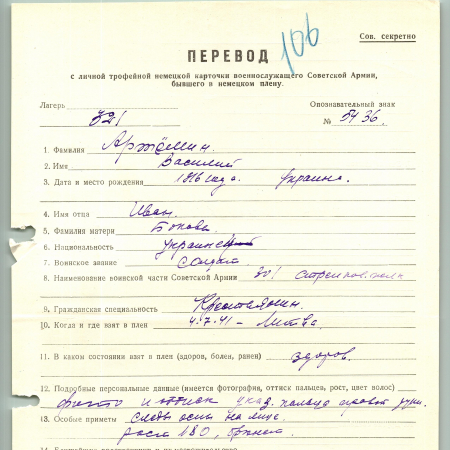 106
Сов. секретно
ПЕРЕВОД
с личной трофейной немецкой карточки военнослужащего Советской Армии,
бывшего в немецком плену.
Лагерь Опознавательный знак
321 № 5436.
1. Фамилия Артёмин.
2. Имя Василий
3. Дата и место рождения 1916 года. Украина.
4. Имя отца Иван.
5. Фамилия матери
6. Национальность украинец
7. Воинское звание солдат
8. Наименование воинской части Советской Армии 301 стрелков. полк
9. Гражданская специальность Крестьянин.
10. Когда и где взят в плен 4.7.41 - Литва.
11. В каком состоянии взят в плен (здоров, болен, ранен) здоров.
12. Подробные персональные данные (имеется фотография, оттиск пальцев, рост, цвет волос)
фото и оттиск указ. пальца правой руки.
13. Особые приметы следы оспы на лице.
рост 180,